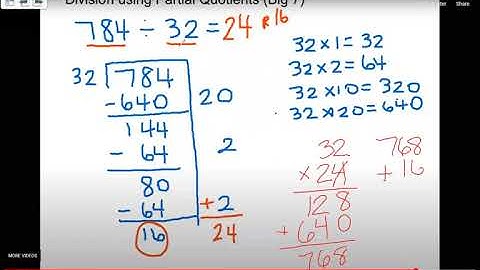 Division using Partial Quotients (Big 7)
784 ÷ 32 = 24 R16
32 784
-640 20
144
- 64 2
80
- 64 +2
16 24
32 x 1 = 32
32 x 2 = 64
32 x 10 = 320
32 x 20 = 640
32
x 24
128
+ 640
768
768
+ 16
MORE VIDEOS